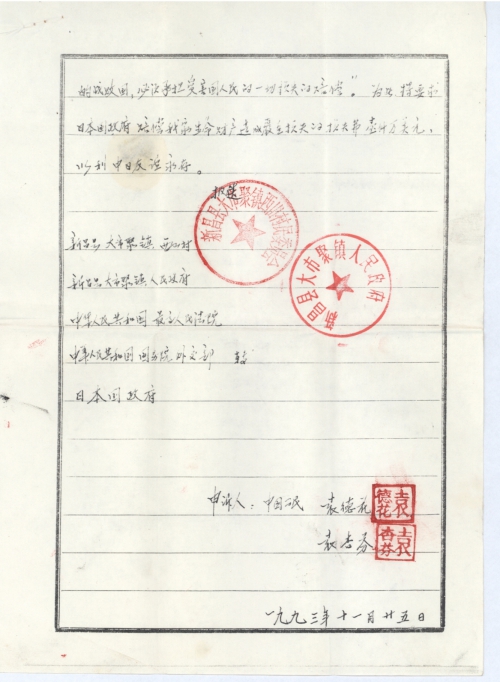 的战败国，必须承担受害国人民的一切损失的赔偿"。为此特要求
日本国政府赔偿我家生命财产造成严重损失的损失费壹仟万美元，
以利中日友谊永存。
新昌县大市聚镇西山村民委员会
新昌县大市聚镇人民政府
新昌县大市聚镇西山村
新昌县大市聚镇人民政府
中华人民共和国最高人民法院
中华人民共和国国务院外交部 转
日本国政府
申诉人：中国公民 袁德花
袁德花
袁杏芬
袁杏芬
一九九三年十一月廿五日